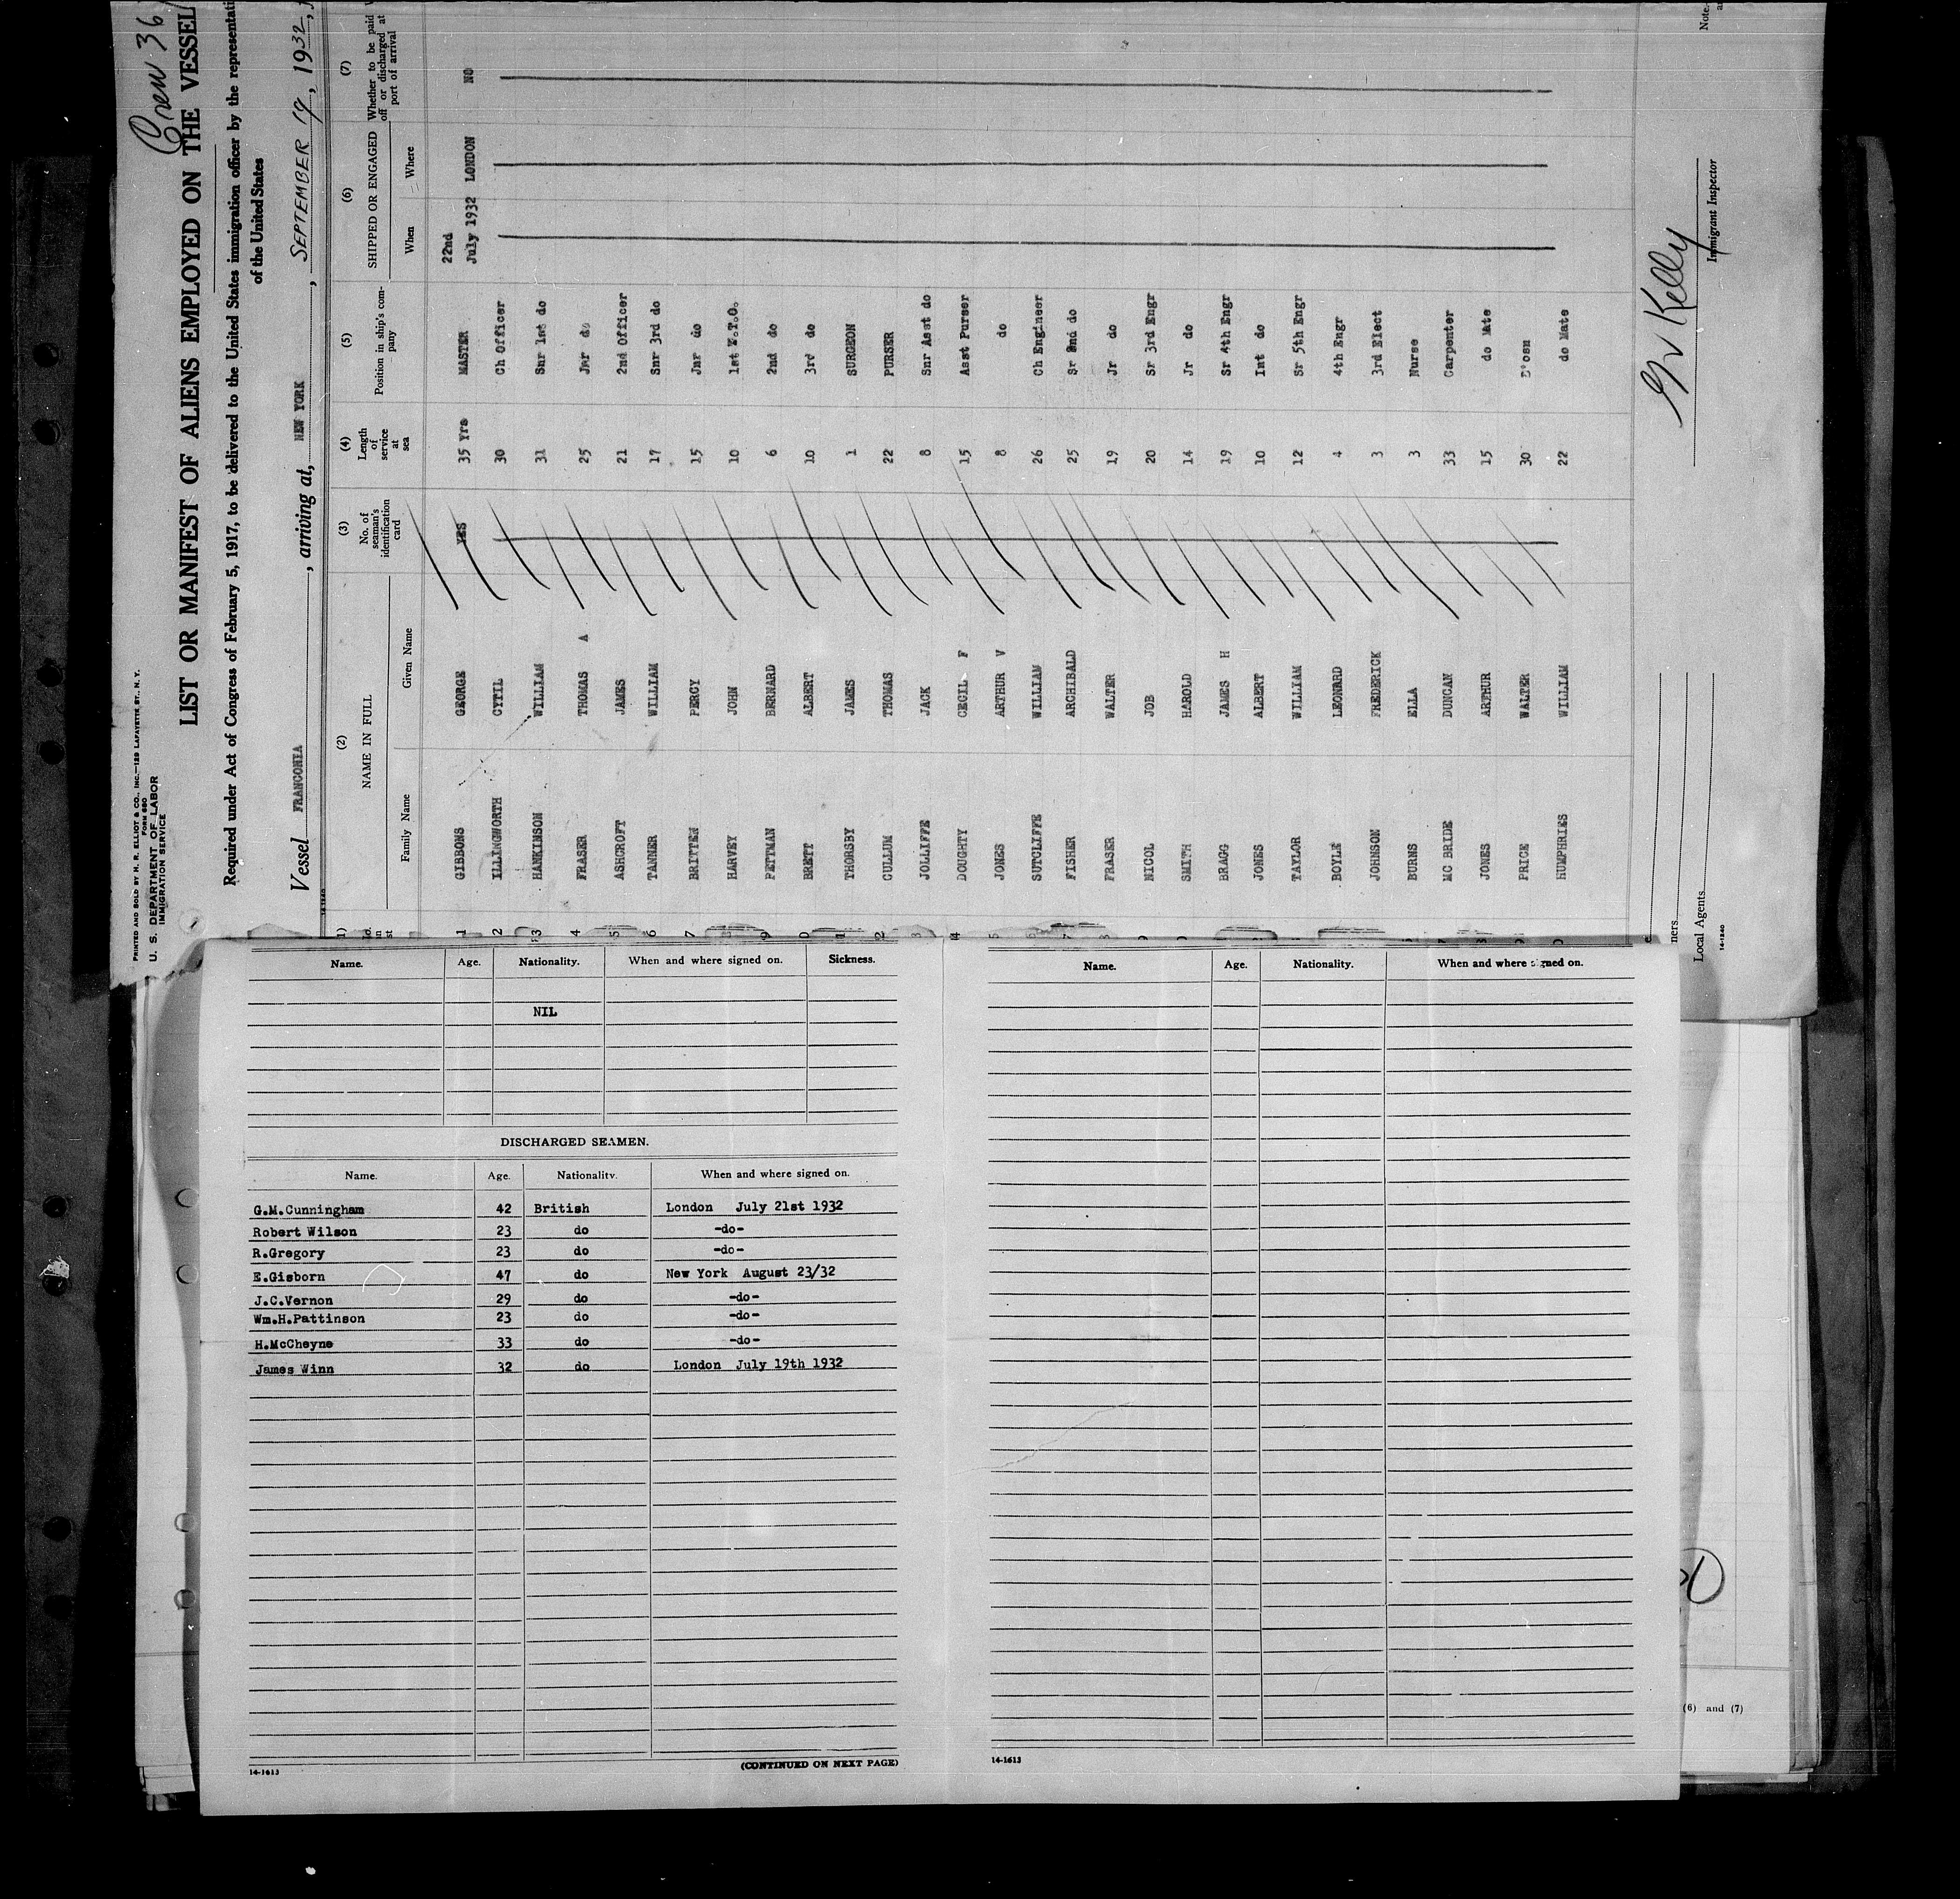 Crew 36
PRINTED AND SOLD BY H. R. ELLIOT & CO., INC.—129 LAFAYETTE ST., N. Y.
FORM 680
U. S. DEPARTMENT OF LABOR
IMMIGRATION SERVICE
LIST OR MANIFEST OF ALIENS EMPLOYED ON THE VESSEL
Required under Act of Congress of February 5, 1917, to be delivered to the United States immigration officer by the
of the United States
Vessel FRANCONIA, arriving at, NEW YORK, SEPTEMBER 19, 1932,
(2) (3) (4) (5) (6) (7)
NAME IN FULL No. of seaman's identification card Length of service at sea Position in ship's company SHIPPED OR ENGAGED Whether to be paid off or discharged at port of arrival
Family Name Given Name When Where
22nd
1 GIBBONS GEORGE YES 35 Yrs MASTER July 1932 LONDON NO
2 ILLINGWORTH CYTIL 30 Ch Officer
3 HANKINSON WILLIAM 31 Snr 1st do
4 FRASER THOMAS A 25 Jnr do
5 ASHCROFT JAMES 21 2nd Officer
6 TANNER WILLIAM 17 Snr 3rd do
7 BRITTEN PERCY 15 Jnr do
HARVEY JOHN 10 1st W.T.O.
9 PETYMAN BERNARD 6 2nd do
0 BRETT ALBERT 10 3rd do
1 THORSBY JAMES 1 SURGEON
2 CULLUM THOMAS 22 PURSER
3 JOLLIFFE JACK 8 Snr Asst do
4 DOUGHTY CECIL F 15 Asst Purser
5 JONES ARTHUR V 8 do
SUTCLIFFE WILLIAM 26 Ch Engineer
7 FISHER ARCHIBALD 25 Sr 2nd do
8 FRASER WALTER 19 Jr do
9 NICOL JOB 20 Sr 3rd Engr
0 SMITH HAROLD 14 Jr do
BRAGG JAMES H 19 Sr 4th Engr
JONES ALBERT 10 Int do
3 TAYLOR WILLIAM 12 Sr 5th Engr
BOYLE LEONARD 4 4th Engr
JOHNSON FREDERICK 3 3rd Elect
BURNS ELLA 3 Nurse
7 MC BRIDE DUNCAN 33 Carpenter
8 JONES ARTHUR 15 do Mate
9 PRICE WALTER 30 B'osn
0 HUMPHRIES WILLIAM 22 do Mate
Kelly
Immigrant Inspector
Local Agents
14-1240
Note.
Name. Age. Nationality. When and where signed on. Sickness.
NIL
DISCHARGED SEAMEN.
Name. Age. Nationality. When and where signed on.
G.M.Cunningham 42 British London July 21st 1932
Robert Wilson 23 do -do-
R.Gregory 23 do -do-
E.Gisborn 47 do New York August 23/32
J.C.Vernon 29 do -do-
Wm.H.Pattinson 23 do -do-
H.McCheyne 33 do -do-
James Winn 32 do London July 19th 1932
14-1613 (CONTINUED ON NEXT PAGE)
Name. Age. Nationality. When and where signed on.
14-1613
(6) and (7)